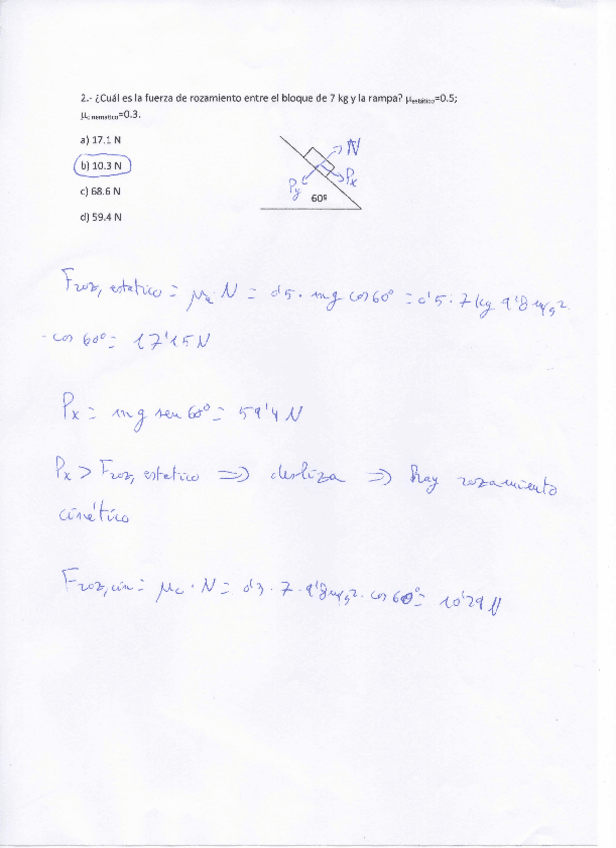 2.- ¿Cuál es la fuerza de rozamiento entre el bloque de 7 kg y la rampa? μestático=0.5;
μcinemático=0.3.
a) 17.1 N
b) 10.3 N
c) 68.6 N
d) 59.4 N
N
Px
Py
60º
Froz, estatico = μe · N = 0'5 · mg cos 60º = 0'5 · 7 kg 9'8 m/s² ·
· cos 60º = 17'15 N
Px = mg sen 60º = 59'4 N
Px > Froz, estatico ⇒ desliza ⇒ hay rozamiento
cinético
Froz, cin = μc · N = 0'3 · 7 · 9'8 m/s² · cos 60º = 10'29 N